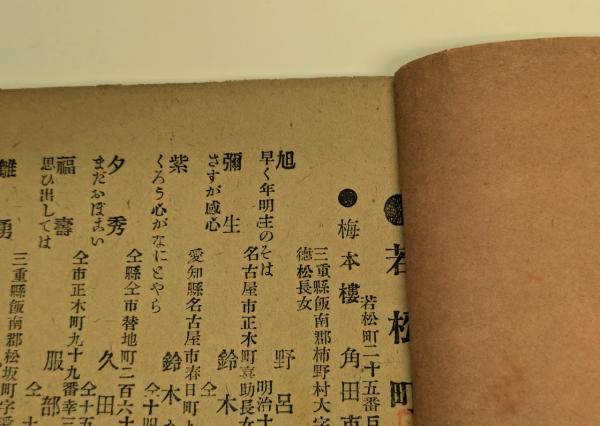 ●若松町
若松町二十五番戸
●梅本樓 角田市
三重縣飯南郡柿野村大字
德松長女
旭 野呂
早く年明主のそは 明治十
名古屋市正木町喜助長女
彌生 鈴木
さすが感心 仝
愛知縣名古屋市春日町
紫 鈴木
くろう心がなにとやら 仝十四
仝縣仝市替地町二百六十
夕秀 久田
まだおぼこい 仝十
仝市正木町九十九番幸三
福壽 服部
思ひ出しては 仝十五
三重縣飯南郡松坂町字
勇